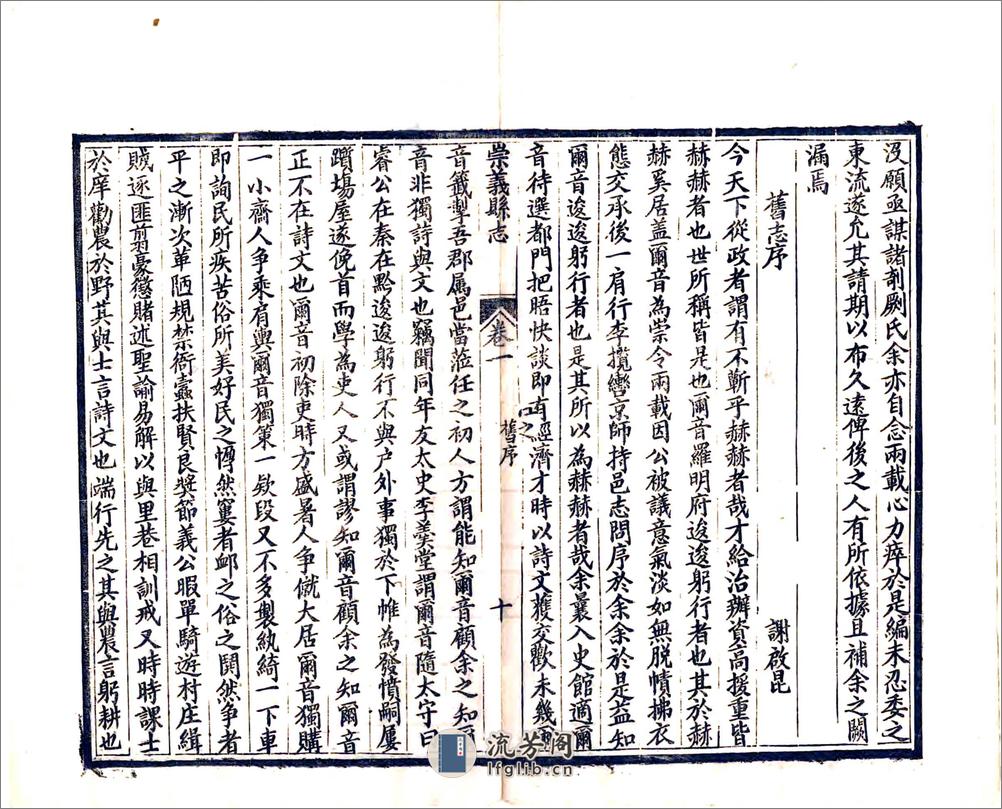 沒願亟謀諸剞劂氏余亦自念兩載心力瘁於是編未忍委之
東流遂允其請期以布久遠俾後之人有所依據且補余之闕
漏焉
舊志序
謝啟昆
今天下從政者謂有不蘄乎赫赫者哉才給治辦資高援重皆
赫赫者也世所稱皆是也爾音羅明府逡逡躬行者也其於赫
赫奚居盖爾音為崇令兩載因公被議意氣淡如無脫幘拂衣
態交承後一肩行李攬轡京師持邑志問序於余余於是益知
爾音逡逡躬行者也是其所以為赫赫者哉余曩入史館適爾
音待選都門把晤快談即有經濟才時以詩文獲交歡未幾爾
崇義縣志
卷一
舊序
十
音籤掣吾郡属邑當蒞任之初人方謂能知爾音顧余之知爾
音非獨詩與文也竊聞同年友太史李羹堂謂爾音隨太守曰
睿公在秦在黔逡逡躬行不與户外事獨於下帷為發憤嗣屢
躓場屋遂俛首而學為吏人又或謂謬知爾音顧余之知爾音
正不在詩文也爾音初除吏時方盛暑人争僦大居爾音獨購
一小齋人争乘肩輿爾音獨策一欵段又不多製紈綺一下車
即詢民所疾苦俗所美好民之愽然窶者䘏之俗之鬨然争者
平之漸次革陋規禁衙蠹扶賢良奬節義公暇單騎遊村庄緝
賊逐匪翦豪懲賭述聖諭易解以與里巷相訓戒又時時課士
於庠勸農於野其與士言詩文也端行先之其與農言躬耕也
流芳阁
lfglib.cn